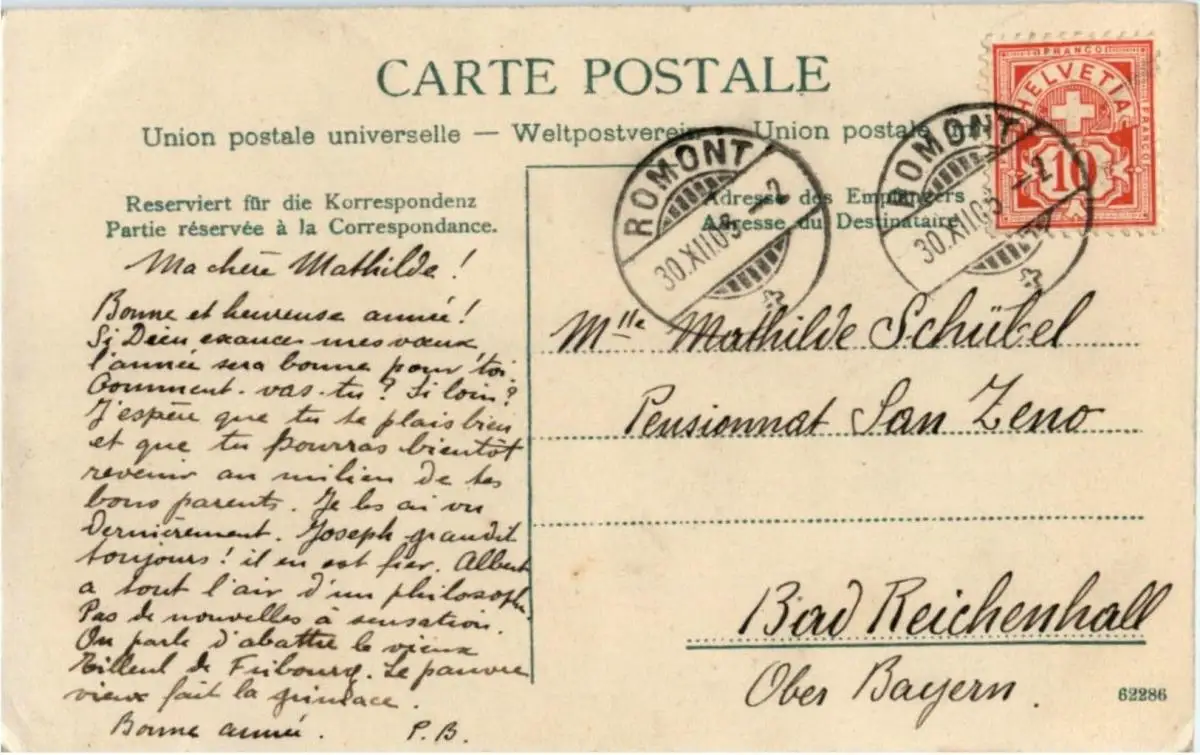 CARTE POSTALE
Union postale universelle — Weltpostverein — Union postale
Reserviert für die Korrespondenz
Partie réservée à la Correspondance.
Ma chère Mathilde !
Bonne et heureuse année !
Si Dieu exauce mes vœux
l'année sera bonne pour toi.
Comment vas-tu ? Si loin ?
J'espère que tu te plais bien
et que tu pourras bientôt
revenir au milieu de tes
bons parents. Je les ai vu
dernièrement. Joseph grandit
toujours ! il en est fier. Albert
a tout l'air d'un philosophe.
Pas de nouvelles à sensation.
On parle d'abattre le vieux
Tilleul de Fribourg. Le pauvre
vieux fait la grimace.
Bonne année. P.B.
FRANCO
HELVETIA
10
FRANCO
ROMONT
30.XII.05 – 2
ROMONT
30.XII.05 – 2
Adresse des Empfängers
Adresse du Destinataire
Mlle Mathilde Schübel
Pensionnat San Zeno
Bad Reichenhall
Ober Bayern.
62286